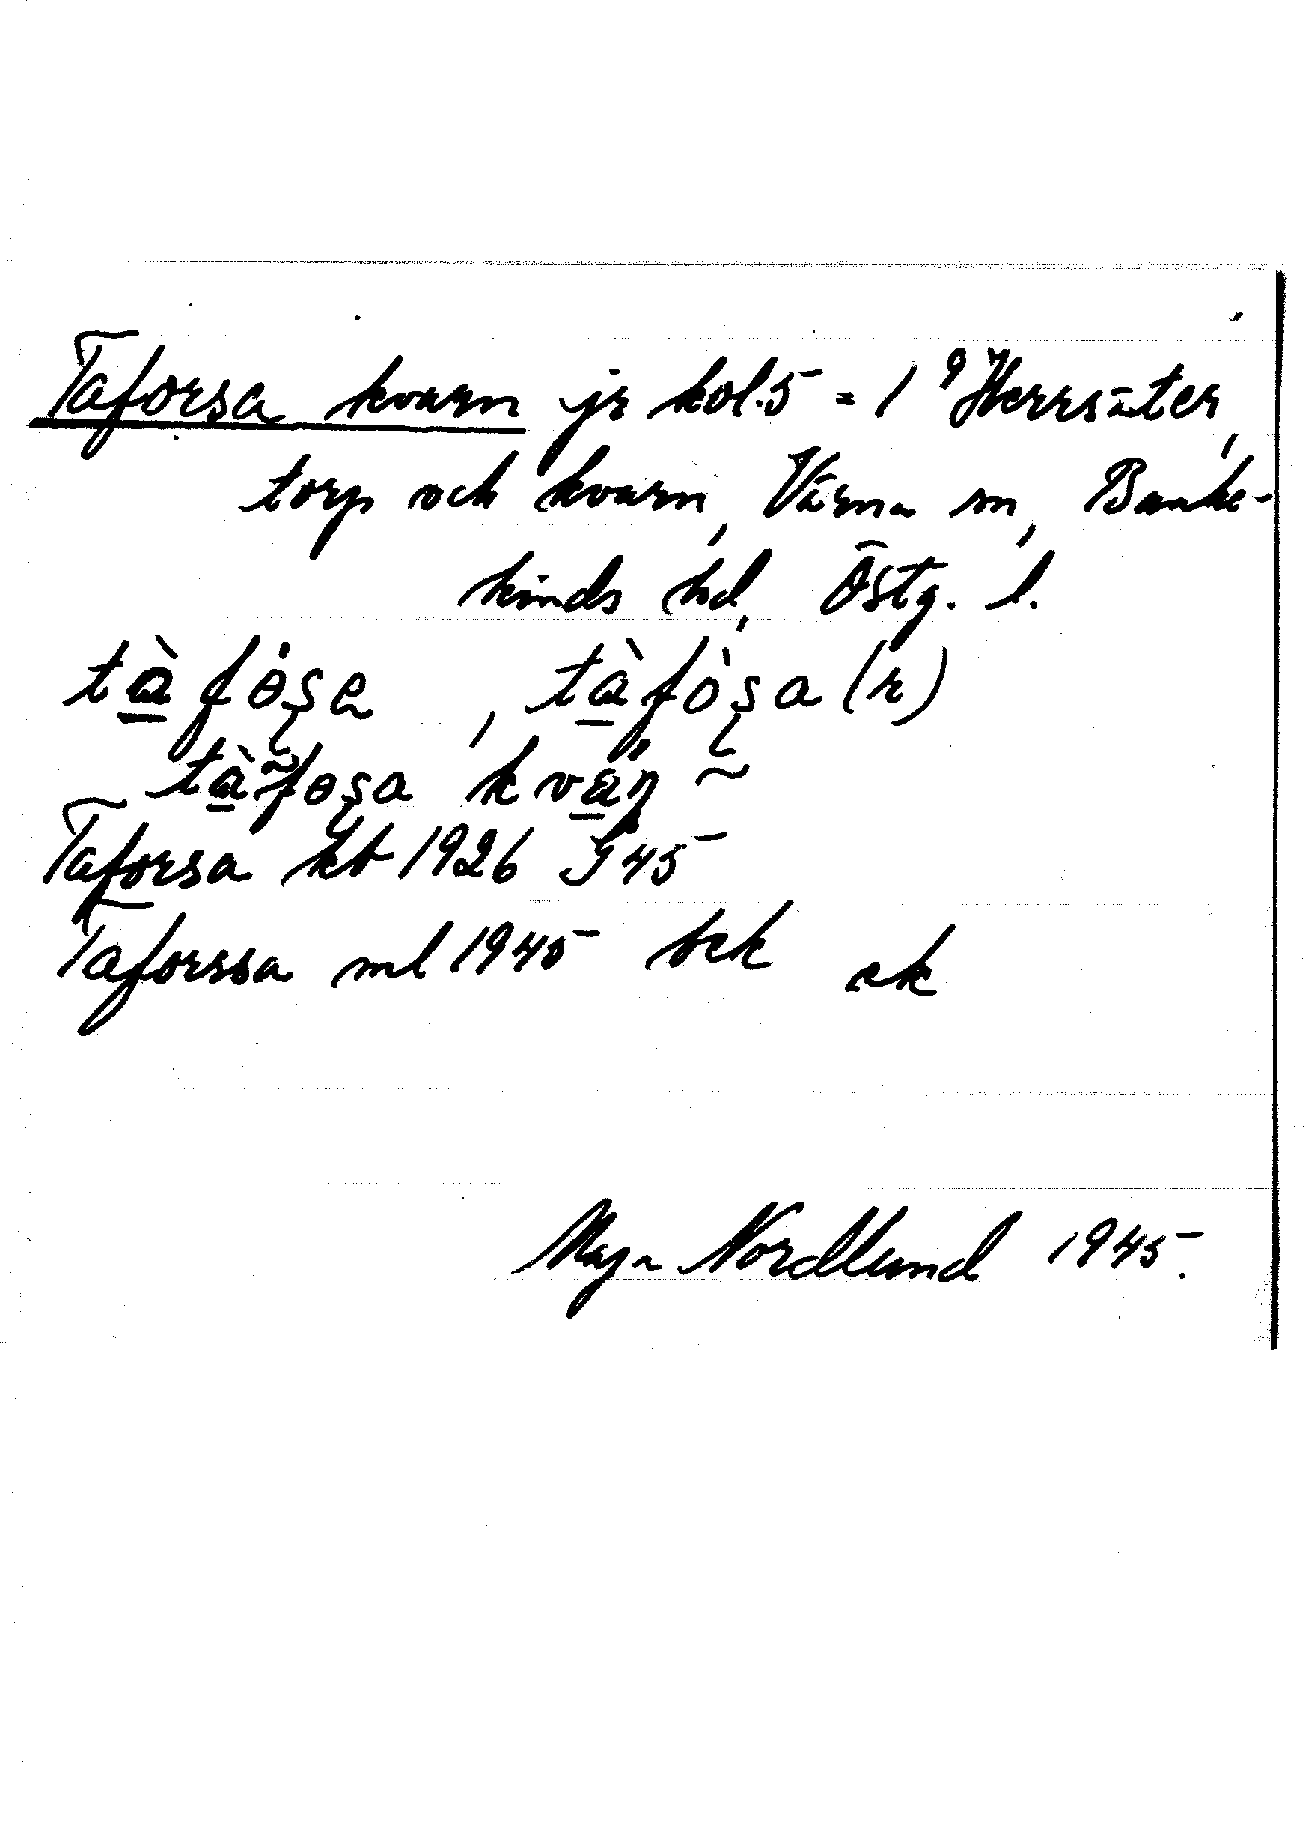 Taforsa kvarn jr kol. 5 = 1⁹ Herrsäter,
torp och kvarn, Värna sn, Banke-
kinds hd, Östg. l.
tàfòʂa, tàfòʂa (r)
tàfoʂa kváɳ ~
Taforsa kb 1926 J 45
Taforssa ml 1945 bek ek
Maja Nordlund 1945.